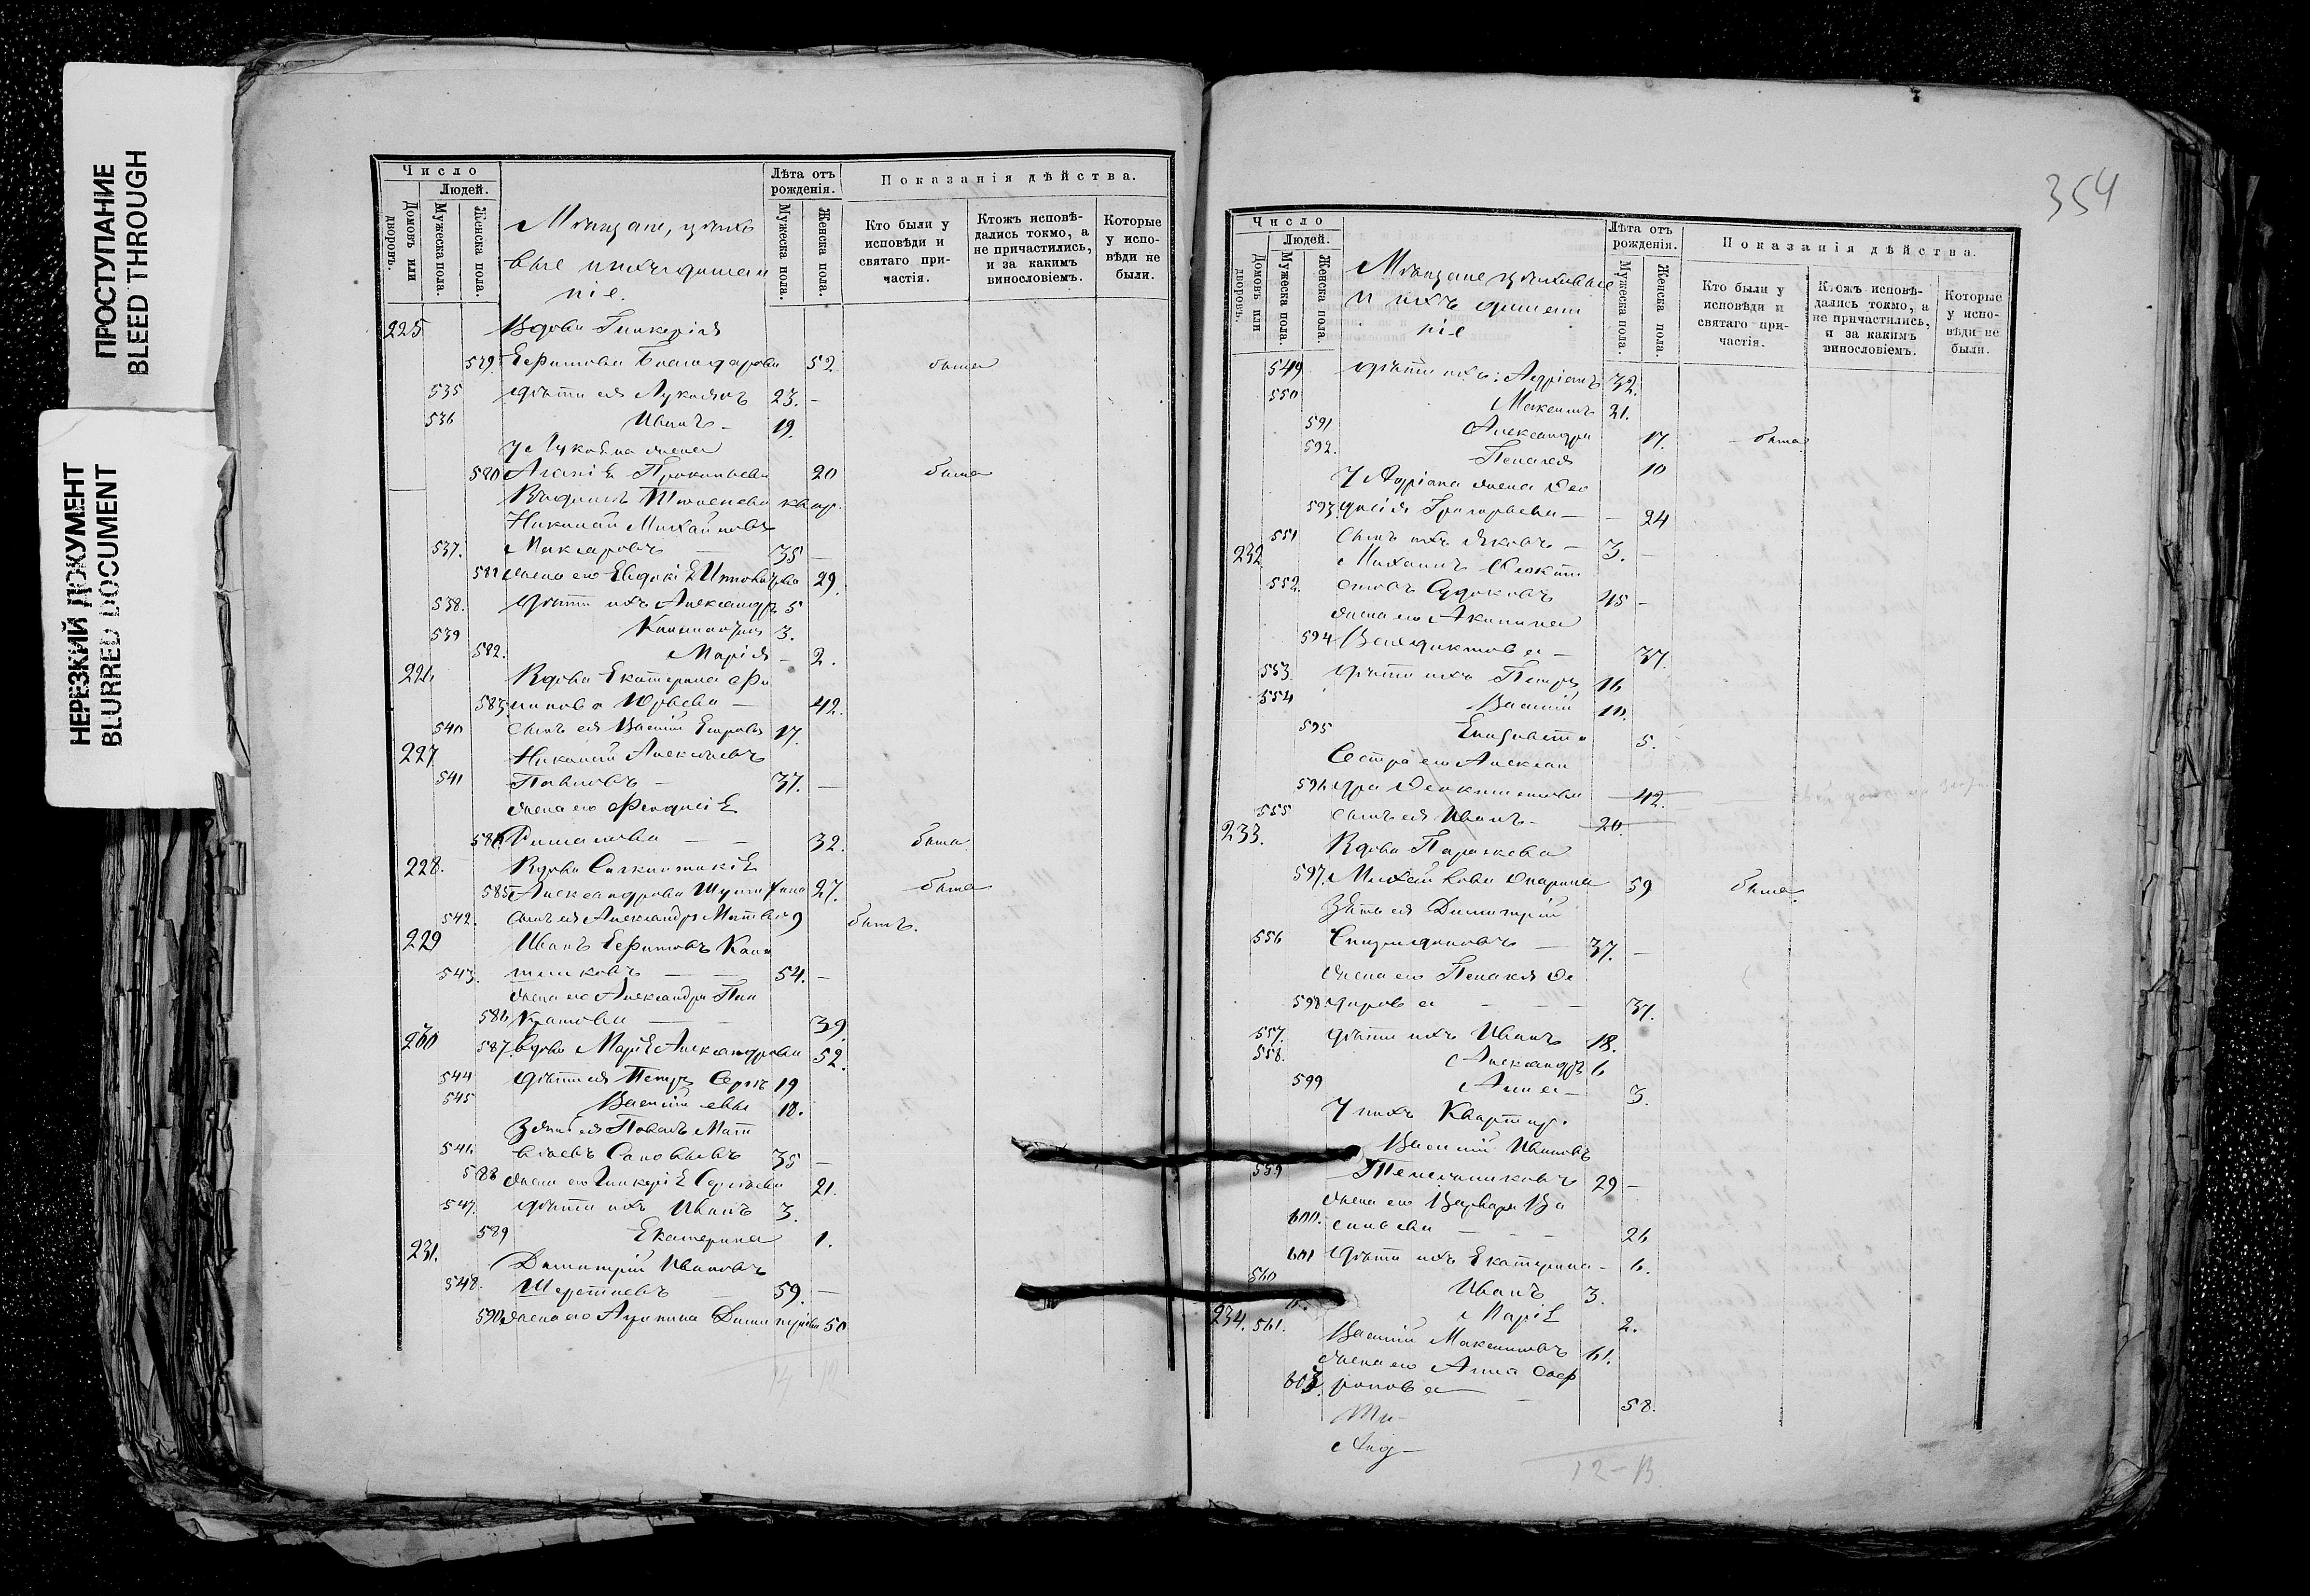 ПРОСТУПАНИЕ
BLEED THROUGH
НЕРЕЗКИЙ ДОКУМЕНТ
BLURRED DOCUMENT
Число
Людей.
Домовъ или дворовъ.
Мужеска пола.
Женска пола.
Мѣщане, цѣховые и ихъ домашніе.
Лѣта отъ рожденія.
Мужеска пола.
Женска пола.
Показанія дѣйства.
Кто были у исповѣди и святаго причастія.
Ктожъ исповѣдались токмо, а не причастились, и за какимъ винословіемъ.
Которые у исповѣди не были.
225 Вдова Гликерія
579 Ефимова 52 была
535 дѣти ея Лукьянъ 23. -
536 Иванъ - 19.
У Лукьяна жена
580 Агапія Прокопьева 20 была
Николай Михайловъ
537. Макаровъ 35 -
581 жена его Евдокія 29.
538. дѣти ихъ Александръ 5
539 Константинъ 3.
582. Марія - 2.
Вдова Екатерина Фи
583. липова Юрьева - 42.
540 сынъ ея Василій Егоровъ 17.
227 Николай Алексѣевъ
541 Павловъ - 37. -
жена его Феодосія
32. была
228. Вдова Синклитикія
585 Александрова 27. была
542. сынъ ея Александръ 9 былъ.
229 Иванъ Ефимовъ
543. 54. -
жена его Александра Пан
586 кратова 39.
230 587. вдова Марія Александрова 52.
544 дѣти ея Петръ 19
545 Василій 18.
Зять ея Павелъ Мат
546. вѣевъ Соловьевъ 35 -
588 жена его Гликерія Сергѣева 21.
547. дѣти ихъ Иванъ 3.
589 Екатерина 1.
231. Димитрій Ивановъ
548. 59. -
590 жена его Димитріева 50
354
Число
Людей.
Домовъ или дворовъ.
Мужеска пола.
Женска пола.
Мѣщане цѣховые и ихъ домашніе
Лѣта отъ рожденія.
Мужеска пола.
Женска пола.
Показанія дѣйства.
Кто были у исповѣди и святаго причастія.
Ктожъ исповѣдались токмо, а не причастились, и за какимъ винословіемъ.
Которые у исповѣди не были.
549 дѣти ихъ: Адріанъ 32.
550 Максимъ 21.
591 Александра 17. была
592. Пелагея 10
У Адріана жена Ѳео
593. досія Григорьева - 24
551 сынъ ихъ Яковъ - 3. -
232 Михаилъ Ѳеокти
552. стовъ Судоковъ 45 -
жена его Акилина
594 Венедиктова - 37.
553 дѣти ихъ Петръ 16
554 Василій 10.
595 Елизавета 5.
Сестра его Алексан
596 дра Ѳеоктистова 42.
555 сынъ ея Иванъ - 20.
233. Вдова Параскева
597. Михайлова 59 была.
Зять ея Димитрій
556 Спиридоновъ 37. -
жена его Пелагея Ѳе
598 дорова 37.
557. дѣти ихъ Иванъ 18.
558. Александръ 6
599 Анна - 3.
У нихъ Квартир.
Василій Ивановъ
559 29 -
жена его Варвара Ва
600. сильева 26
601 дѣти ихъ Екатерина - 6.
560 Иванъ 3.
Марія 2.
234. 561. Василій Максимовъ 61.
жена его Анна Соф
603 ронова 58.
12-13